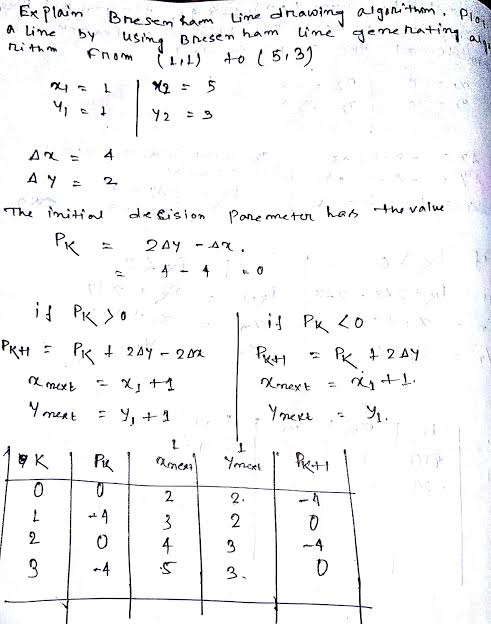 Explain Bresen ham Line drawing algorithm. Plot
a line by using Bresen ham line generating algo
rithm From (1,1) to (5,3)
x1 = 1 | x2 = 5
y1 = 1 | y2 = 3
Δx = 4
Δy = 2
The initial decision Paremeter has the value
PK = 2Δy - Δx.
= 4 - 4 = 0
if PK > 0 | if PK < 0
PK+1 = PK + 2Δy - 2Δx | PK+1 = PK + 2Δy
xnext = x1 + 1 | xnext = x1 + 1.
Ynext = y1 + 1 | Ynext = y1.
1 1
K | PK | xnext | Ynext | PK+1
0 | 0 | 2 | 2. | -4
1 | -4 | 3 | 2 | 0
2 | 0 | 4 | 3 | -4
3 | -4 | 5 | 3. | 0